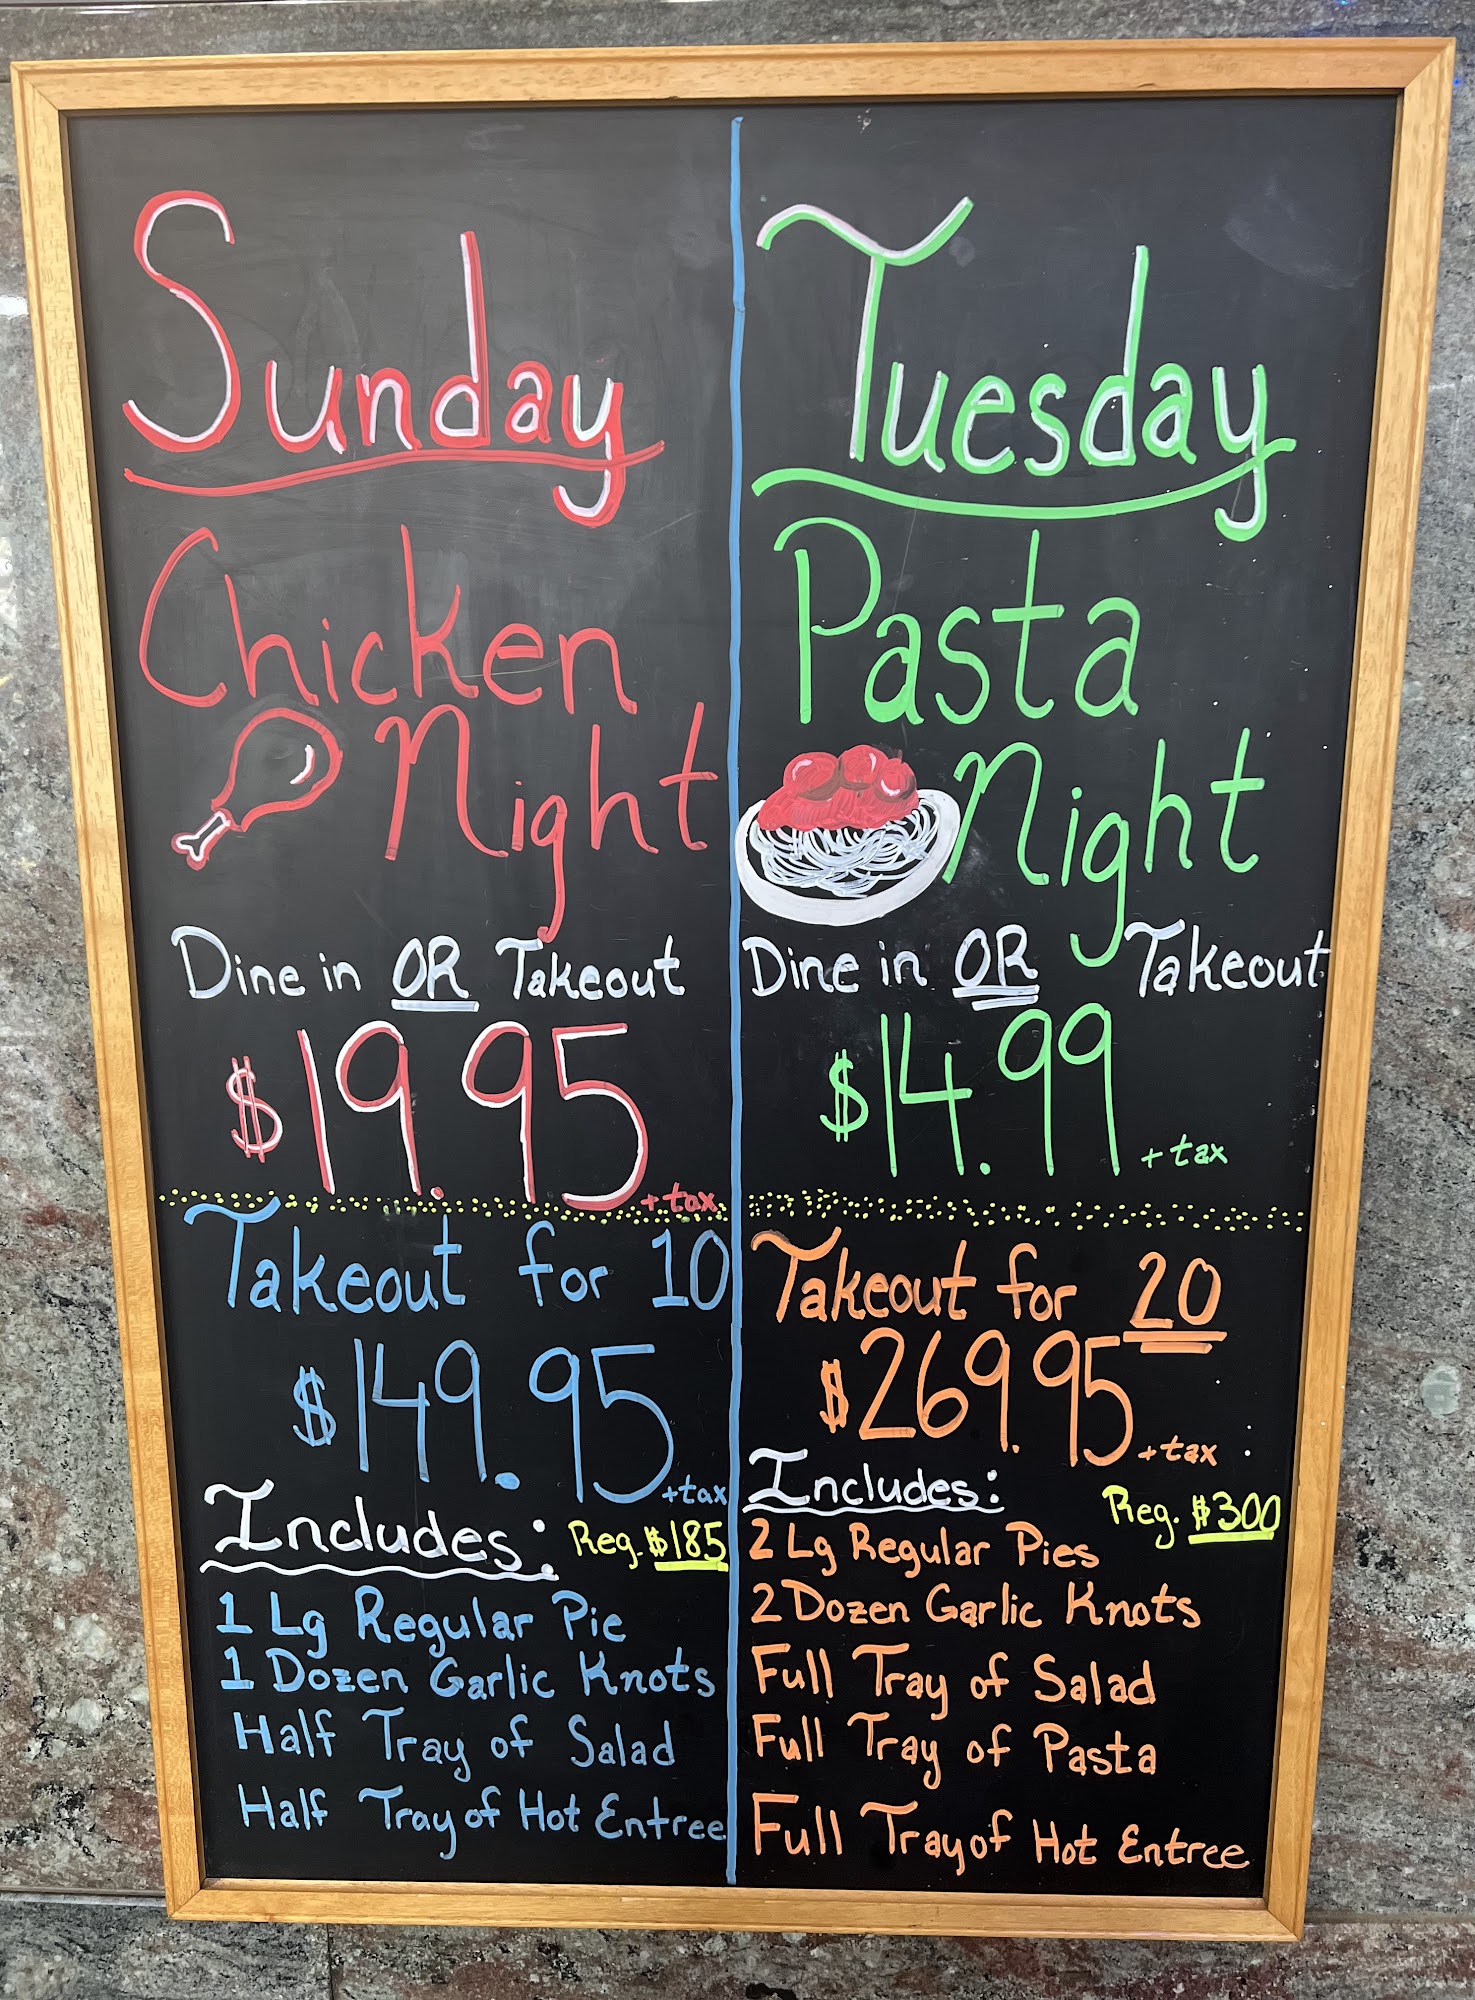 Sunday
Chicken
Night
Dine in OR Takeout
$19.95
+ tax
Takeout for 10
$149.95
+tax
Includes:
Reg. $185
1 Lg Regular Pie
1 Dozen Garlic Knots
Half Tray of Salad
Half Tray of Hot Entree
Tuesday
Pasta
Night
Dine in OR Takeout
$14.99
+ tax
Takeout for 20
$269.95
+tax
Includes:
Reg. $300
2 Lg Regular Pies
2 Dozen Garlic Knots
Full Tray of Salad
Full Tray of Pasta
Full Tray of Hot Entree